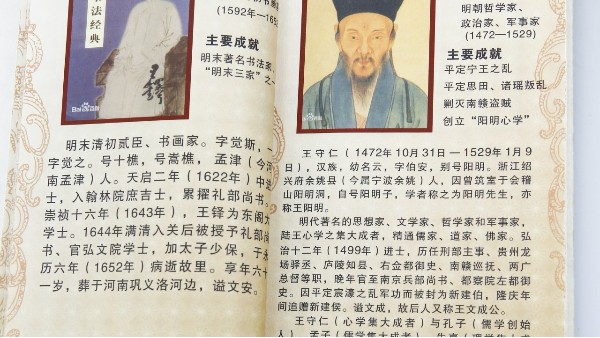 书法经典
（1592年—1652
主要成就
明末著名书法家，
“明末三家”之一
Baidu百科
明末清初贰臣、书画家。字觉斯，一
字觉之。号十樵，号嵩樵，孟津（今河
南孟津）人。天启二年（1622年）中进
士，入翰林院庶吉士，累擢礼部尚书。
崇祯十六年（1643年），王铎为东阁大
学士。1644年满清入关后被授予礼部尚
书、官弘文院学士，加太子少保，于永
历六年（1652年）病逝故里。享年六十
一岁，葬于河南巩义洛河边，谥文安。
明朝哲学家、
政治家、军事家
（1472—1529）
主要成就
平定宁王之乱
平定思田、诸瑶叛乱
剿灭南赣盗贼
创立“阳明心学”
Baidu百科
王守仁（1472年10月31日—1529年1月9
日），汉族，幼名云，字伯安，别号阳明。浙江绍
兴府余姚县（今属宁波余姚）人，因曾筑室于会稽
山阳明洞，自号阳明子，学者称之为阳明先生，亦
称王阳明。
明代著名的思想家、文学家、哲学家和军事家，
陆王心学之集大成者，精通儒家、道家、佛家。弘
治十二年（1499年）进士，历任刑部主事、贵州龙
场驿丞、庐陵知县、右佥都御史、南赣巡抚、两广
总督等职，晚年官至南京兵部尚书、都察院左都御
史。因平定宸濠之乱军功而被封为新建伯，隆庆年
间追赠新建侯。谥文成，故后人又称王文成公。
王守仁（心学集大成者）与孔子（儒学创始